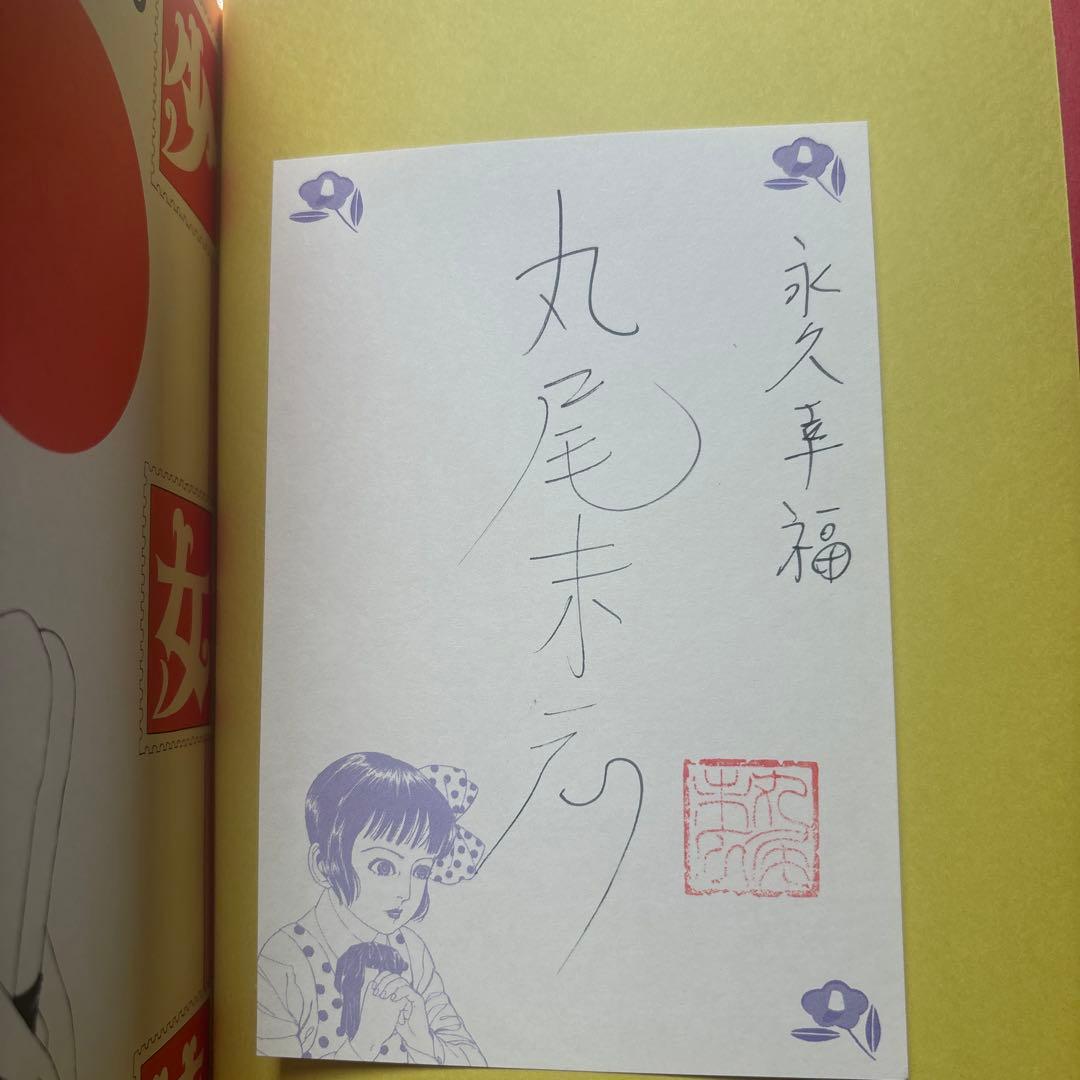 永久幸福
丸尾末広
丸尾
末広
少
女